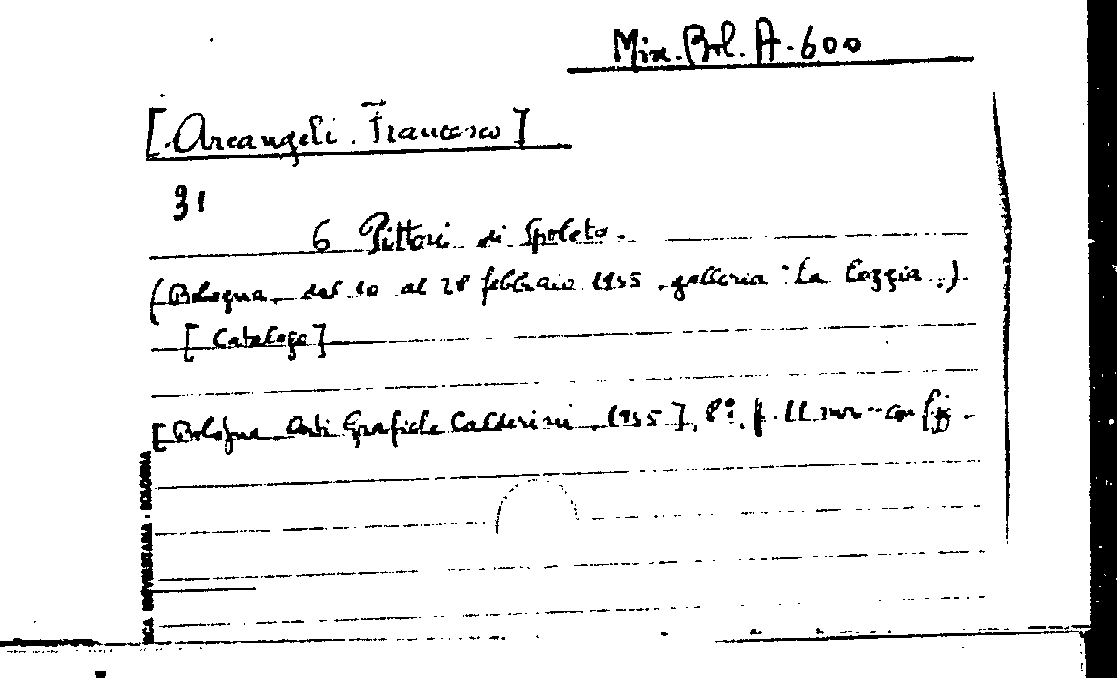 Mix. Bol. A. 600
[Arcangeli. Francesco]
31
6 Pittori di Spoleto.
(Bologna, dal 10 al 28 febbraio 1955, galleria "La Loggia").
[Catalogo]
[Bologna Arti Grafiche Calderini, 1955], 8°, p. 11 con fig.
UNIVERSITARIA - BOLOGNA